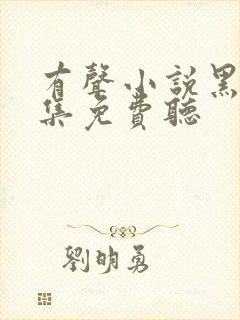 有聲小說黑
集免費聽
劉明勇